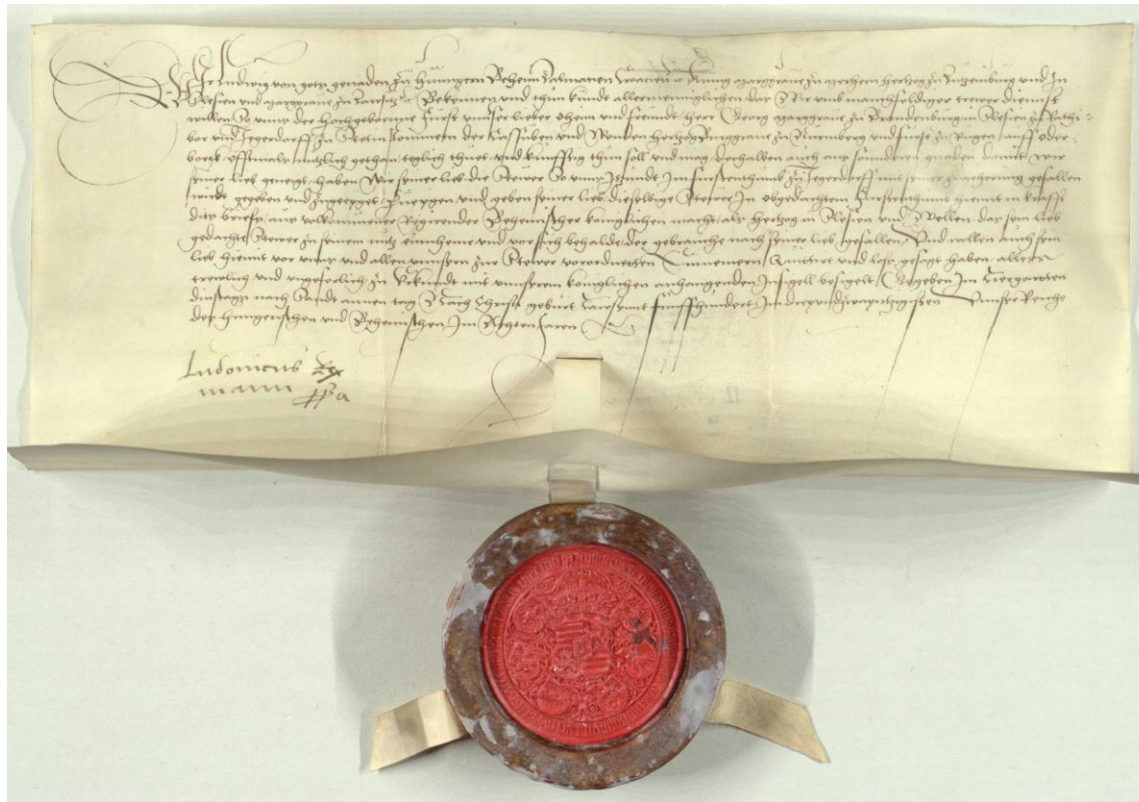 Wir Ludwig von gots genaden zu Hungern Behem Dalmatien Croatien ꝛc Kunig Marggraue zu Merhern Hertzog zu Lutzenburg und In
Slesien und Marggraue zu Lausitz ꝛc Bekennen und thun kunde allermenniglichen das Wir umb manchfeldiger trewer dienst
willen So unns der Hochgeborenne Furst unnser lieber oheim und freundt her Georg Marggraue zu Brandenburg in Slesien zu Rathi-
bor und Jegerdorff zu Stetin Pommern der Cassuben und Wenden Hertzog Burggraue zu Nurmberg und furst zu Rugen auff oder-
offtmals nutzlich gethan teglich thuet und kunfftig thun soll und mag derhalben auch aus sonderen gnaden domit wir
seiner lieb geneigt haben Wir seiner lieb die Stewer So uns Itzundt Im furstenthumb zu Jegerdorff mit seiner zugeherung gefallen
wirdt gegeben und zugeeygent zueygen und geben seiner lieb dieselbige Stewer In obgedachten Furstenthumb hiemit in krafft
dits briefs aus volkummener Regirender Behemischer kōniglichen macht als Hertzog in Slesien und Wollen das sein lieb
gedachte Stewer zu seinem nutz einneme und vor sich behalde der gebrauche nach seiner lieb gefallen Und wollen auch sein
lieb hiemit vor unns und allen unsern zur Stewer vorordneten Einnemern Quittirt und los gesagt haben alles
trewlich und ungeferlich Zu Urkundt mit unnserem koniglichen anhangenden Insigell besigelt Gegeben Im Tiergarten
dinstags nach Sandt annen tag Nach Christi geburt Tausent funffhundert Im dreyundzwentzigisten Unser Reiche
des Hungerischen und Behemischen Im Achten Jaren
Ludovicus Rex
manu ppa